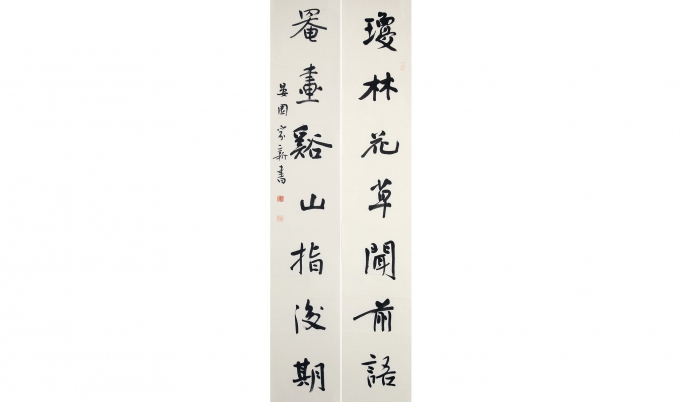 瓊林花草聞前語
罨畫谿山指後期
家新書